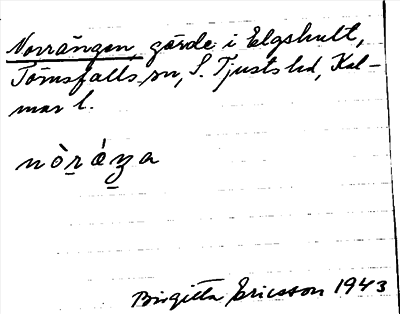 Norrängen, gärde i Elgshult,
Törnsfalls sn, S. Tjusts hd, Kal-
mar l.
nòṟáẕa
Birgitta Ericsson 1943